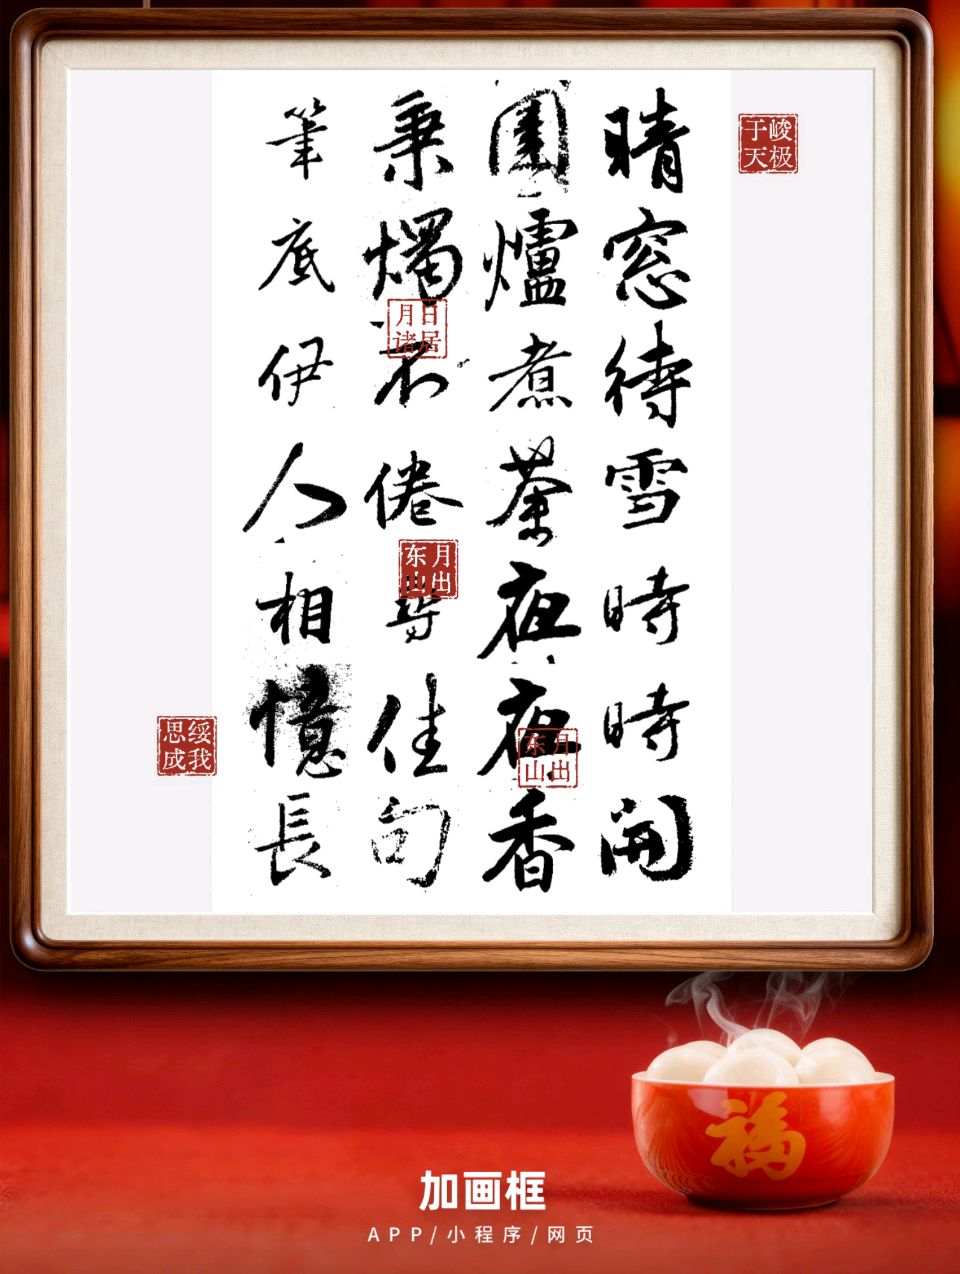 峻极于天
晴窓待雪時時開
圍爐煮茶夜夜香
月出东山
秉燭不倦尋佳句
日居月诸
月出东山
筆底伊人相憶長
绥我思成
福
加画框
APP/小程序/网页